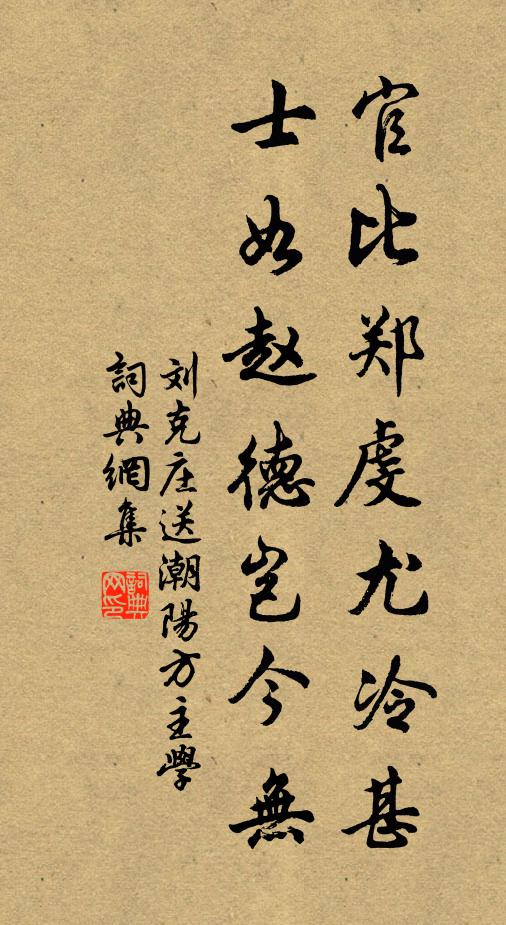 官比郑虔尤冷甚
士如赵德岂今無
刘克庄送潮陽方主學
詞典網集
詞典网印